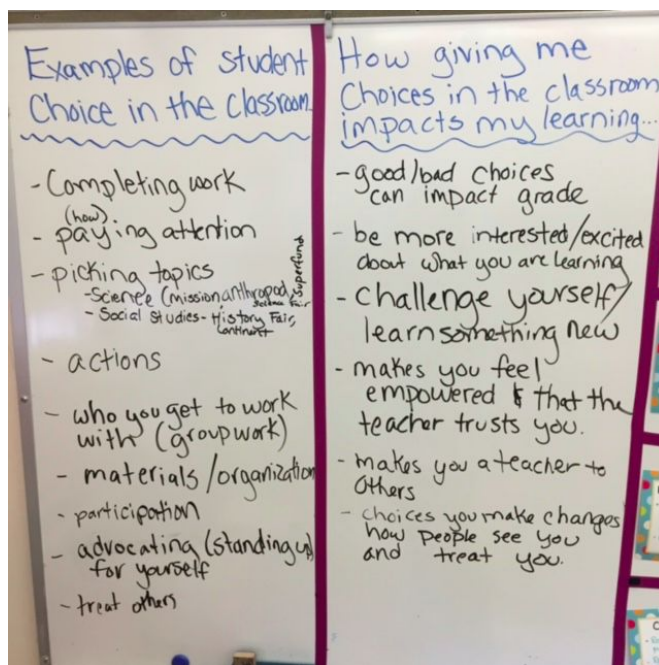 Examples of Student
Choice in the classroom
- Completing work
(how)
- paying attention
- picking topics
- Science (mission anthropod, Science Fair Superfund
- Social Studies - History Fair,
Continent
- actions
- who you get to work
with (group work)
- materials/organization
- participation
- advocating (standing up)
for yourself
- treat others
How giving me
Choices in the classroom
impacts my learning...
- good/bad choices
can impact grade
- be more interested/excited
about what you are learning
- challenge yourself/
learn something new
- makes you feel
empowered & that the
teacher trusts you.
- makes you a teacher to
others
- choices you make changes
how people see you
and treat you.